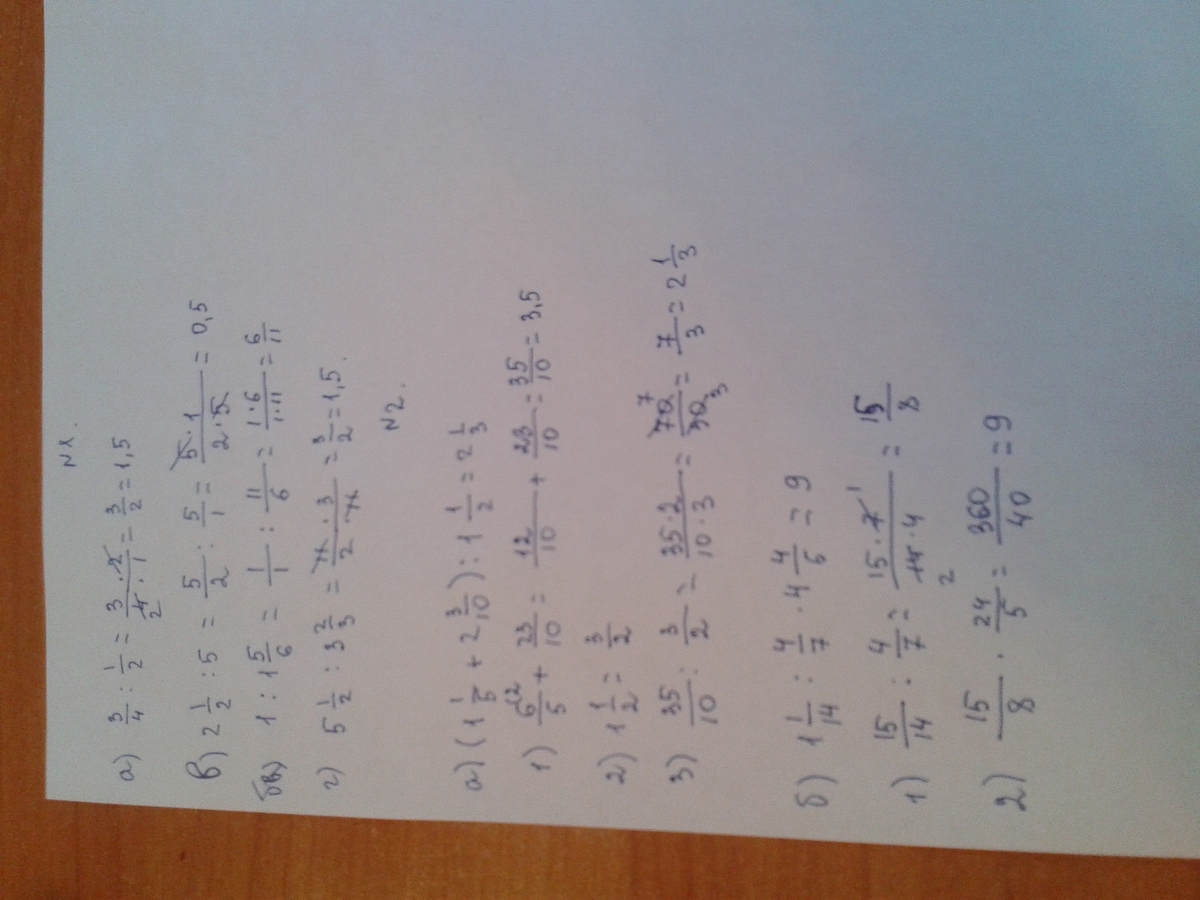 N1.
а) 3/4 : 1/2 = 3·2/4·1 2 = 3/2 = 1,5
в) 2 1/2 : 5 = 5/2 : 5/1 = 5·1/2·5 = 0,5
бв) 1 : 1 5/6 = 1/1 : 11/6 = 1·6/1·11 = 6/11
г) 5 1/2 : 3 2/3 = 11·3/2·11 = 3/2 = 1,5.
N2.
а) (1 1/5 + 2 3/10) : 1 1/2 = 2 1/3
1) 6/5 12 + 23/10 = 12/10 + 23/10 = 35/10 = 3,5
2) 1 1/2 = 3/2
3) 35/10 : 3/2 = 35·2/10·3 = 70/30 7 3 = 7/3 = 2 1/3
б) 1 1/14 : 4/7 · 4 4/5 = 9
1) 15/14 : 4/7 = 15·7/14·4 1 2 = 15/8
2) 15/8 · 24/5 = 360/40 = 9